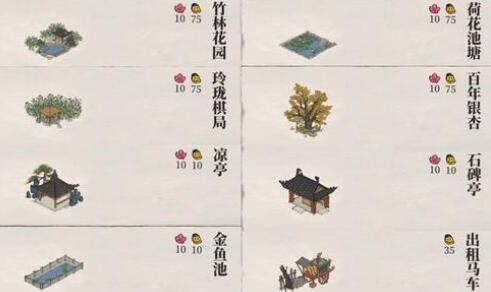 竹林花园
10 75
荷花池塘
10 75
玲珑棋局
10 75
百年银杏
10 75
凉亭
10 10
石碑亭
10 10
金鱼池
10 10
出租马车
35